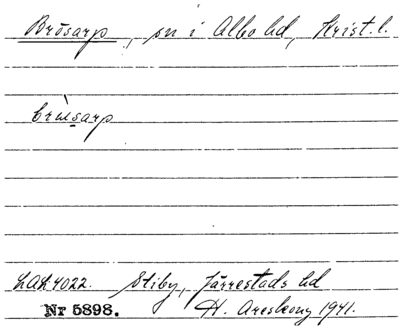 Brösarp, sn i Albo hd, Krist. l.
brùsarp
LAL 4022. Stiby, Järrestads hd
Nr 5898. H. Areskoug 1941.